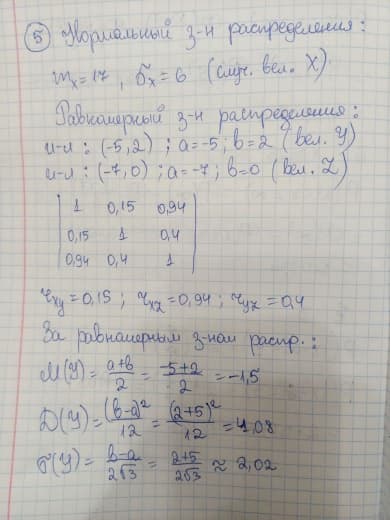 5 Нормальный з-н распределения:
mₓ=17, σₓ=6 (случ. вел. X)
Равномерный з-н распределения:
и-л: (-5,2); a=-5; b=2 (вел. Y)
и-л: (-7,0); a=-7; b=0 (вел. Z)
| 1 0,15 0,94 |
| 0,15 1 0,4 |
| 0,94 0,4 1 |
r_xy=0,15; r_xz=0,94; r_yz=0,4
За равномерным з-ном распр.:
M(Y)= (a+b)/2 = (-5+2)/2 = -1,5
Д(Y)= (b-a)²/12 = (2+5)²/12 = 4,08
σ(Y)= (b-a)/2√3 = (2+5)/2√3 ≈ 2,02